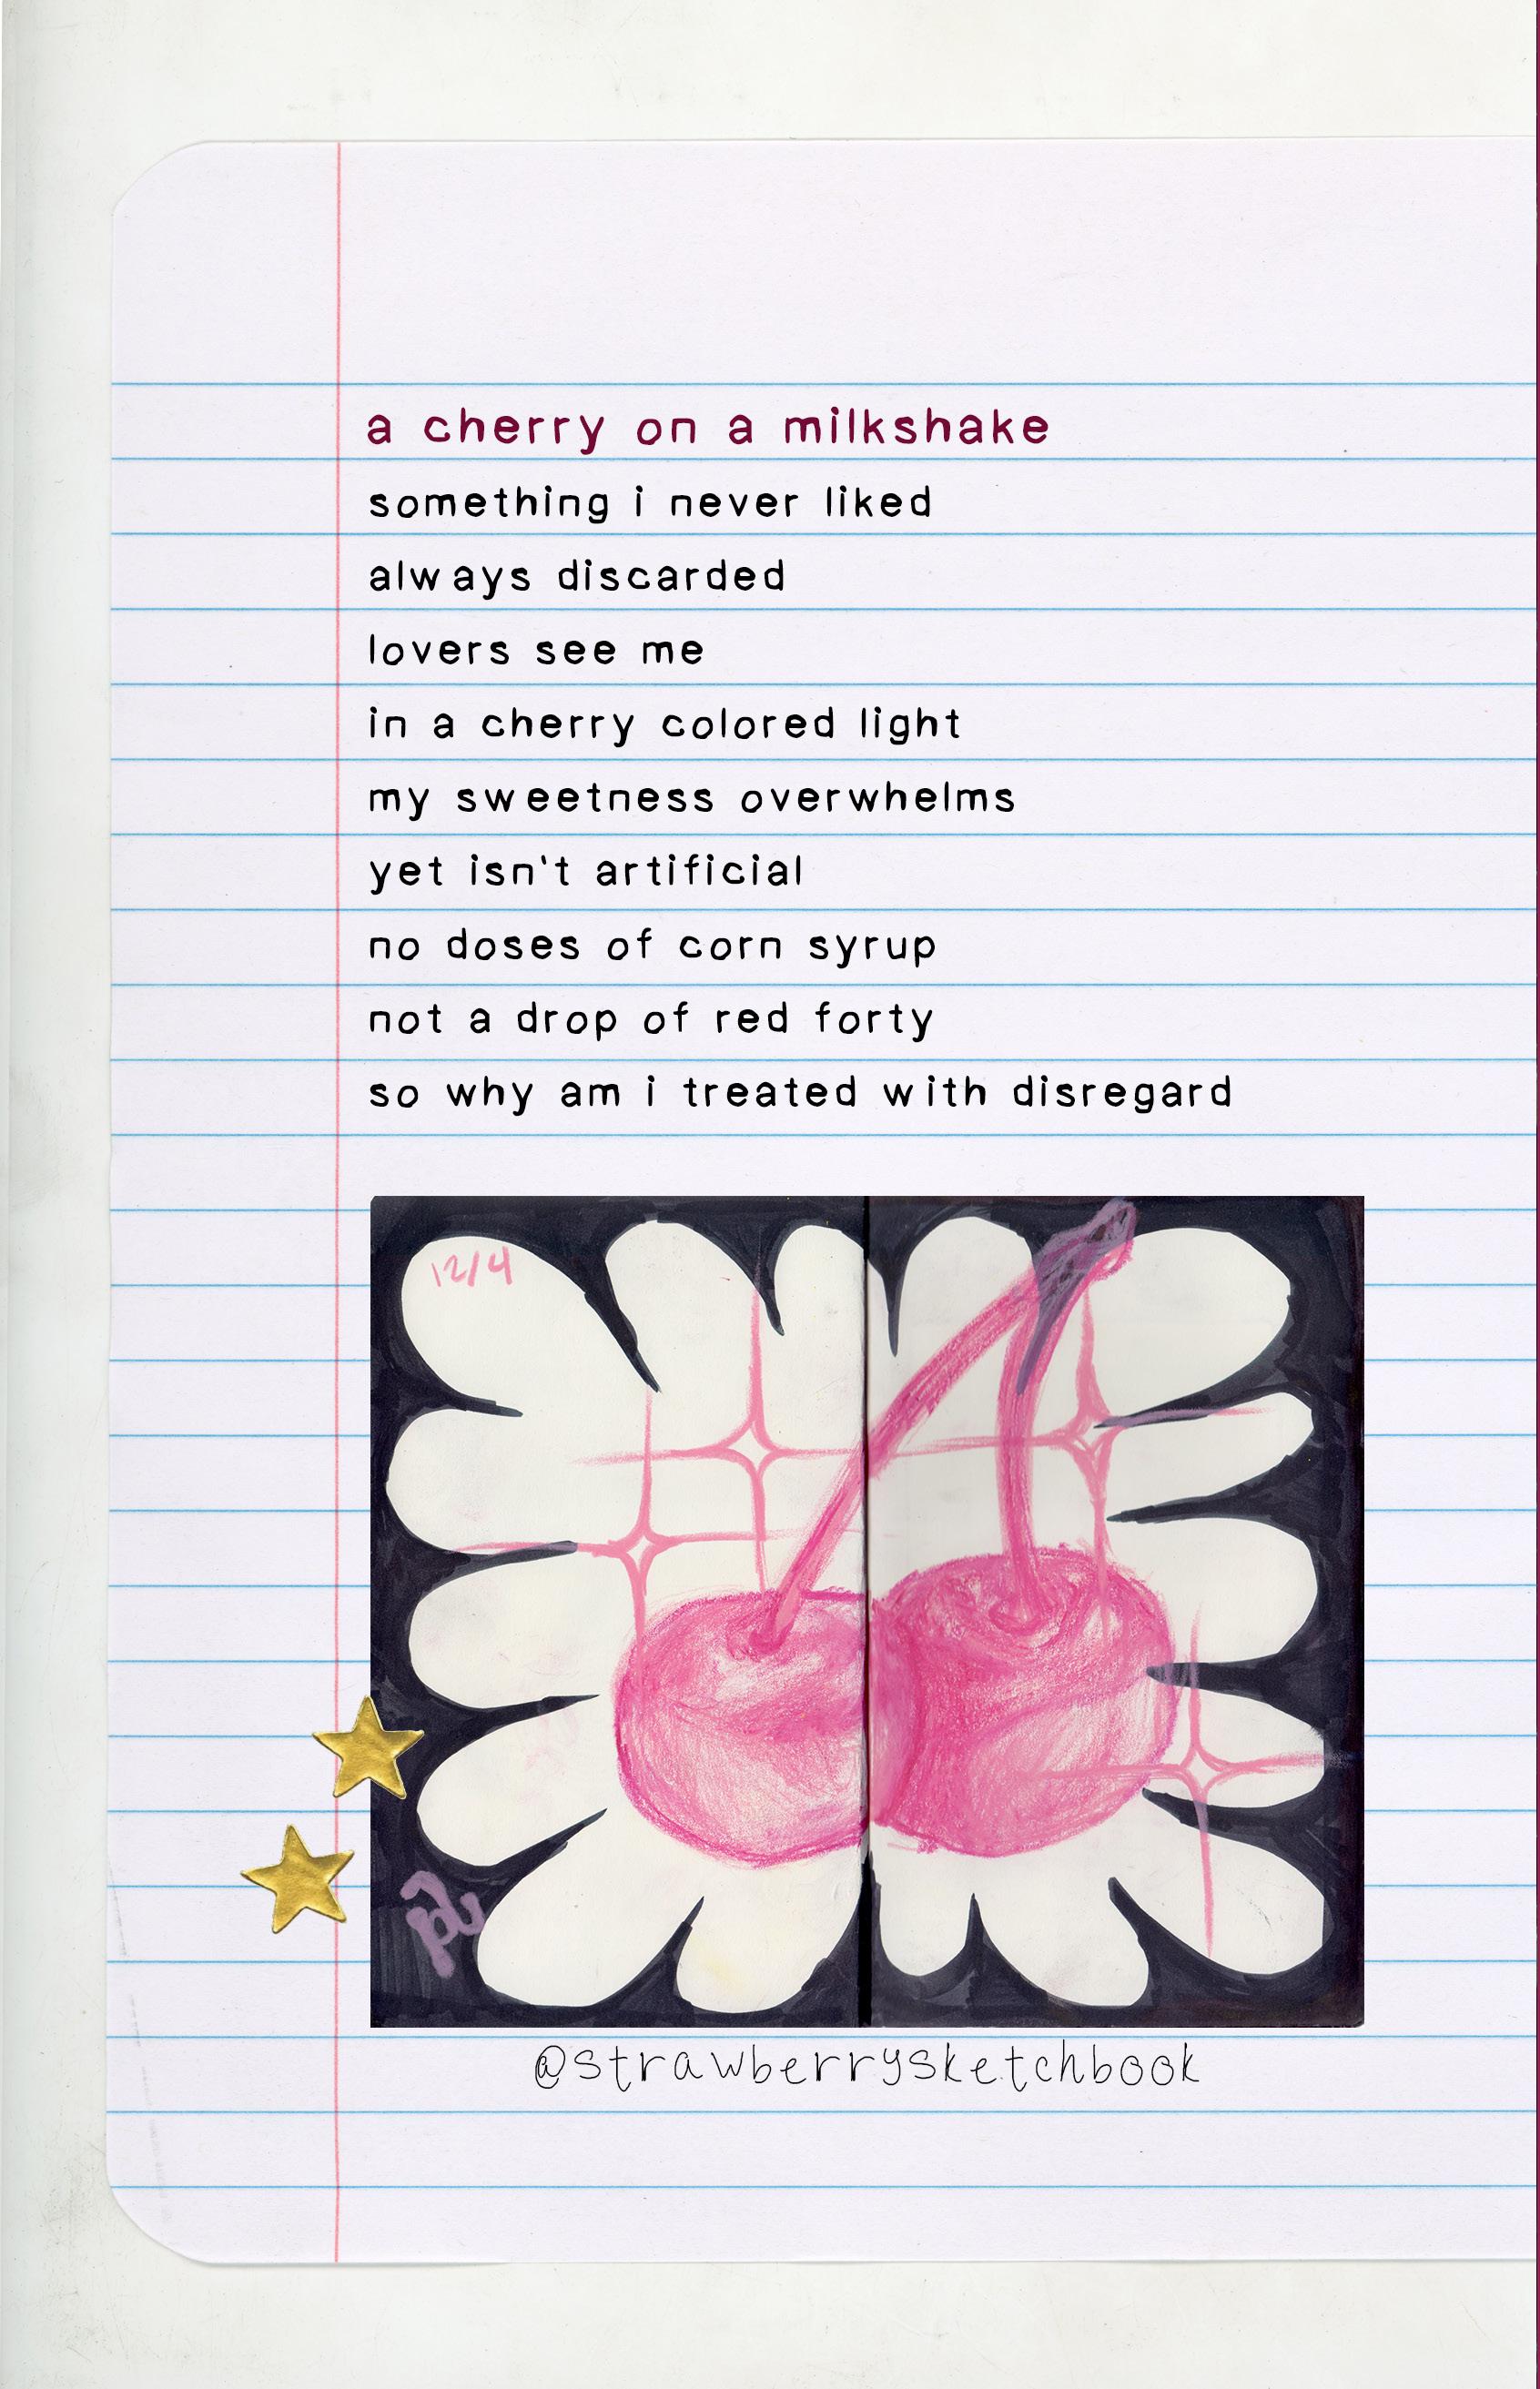 a cherry on a milkshake
something i never liked
always discarded
lovers see me
in a cherry colored light
my sweetness overwhelms
yet isn't artificial
no doses of corn syrup
not a drop of red forty
so why am i treated with disregard
12/4
@strawberrysketchbook